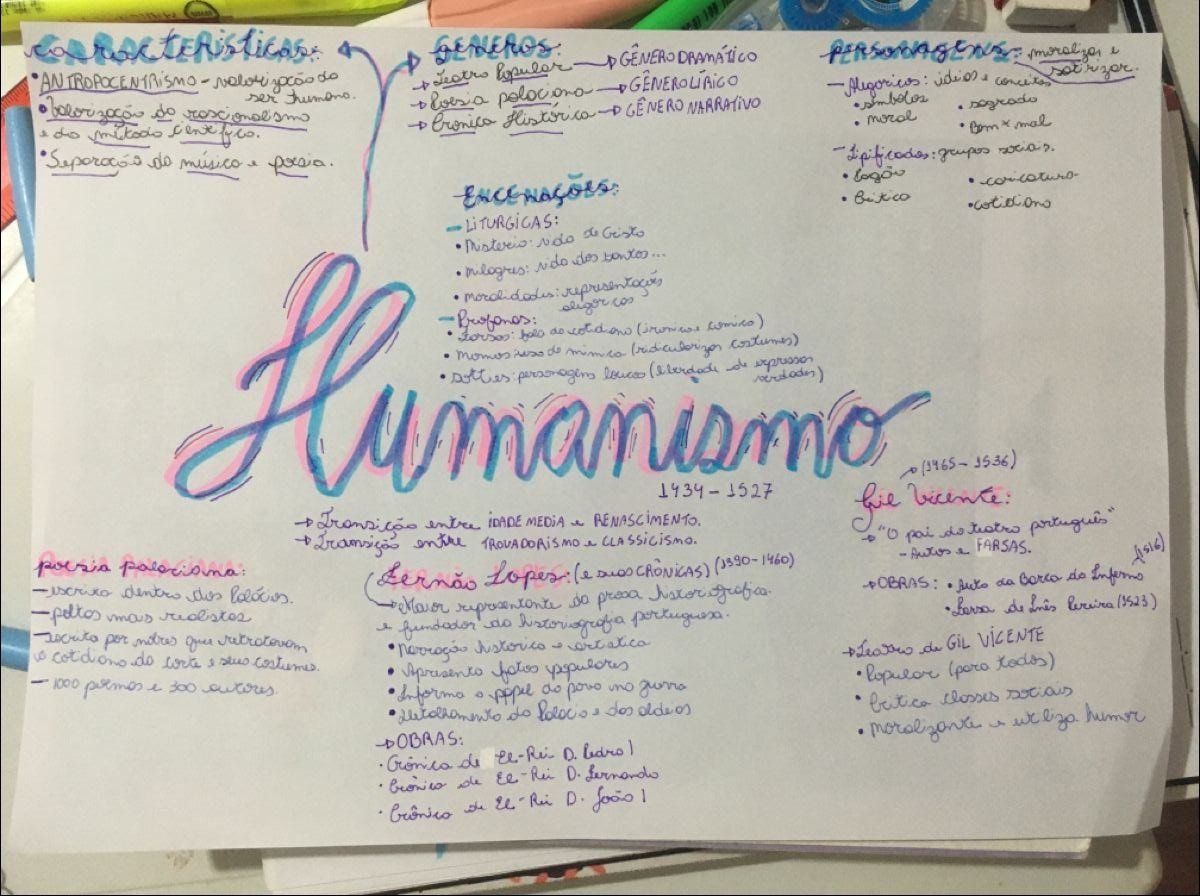 Características:
• ANTROPOCENTRISMO - valorização do
ser humano.
• Valorização do rascionalismo
e do método científico.
• Separação da música e poesia.
GÊNEROS:
→ Teatro Popular → GÊNERO DRAMÁTICO
→ Poesia palaciana → GÊNERO LÍRICO
→ Crônica Histórica → GÊNERO NARRATIVO
PERSONAGENS: moralizar e
satirizar.
- Alegoricos: idéias e conceitos
• símbolos
• sagrado
• moral
• Bem × mal
- Tipificados: grupos sociais.
• Bagão
• caricatura
• Crítica
• cotidiano
ENCENAÇÕES:
- LITURGICAS:
• Misterio: vida de Cristo
• milagres: vida dos santos...
• moralidades: representações
alegoricas
- Profanas:
• Farsas: fala do cotidiano (ironico e comico)
• Momos: uso de mímica (ridicularizar costumes)
• sotties: personagens loucos (liberdade de expressar
verdades)
Humanismo
1434 - 1527
→ Transição entre IDADE MEDIA e RENASCIMENTO.
→ Transição entre TROVADORISMO e CLASSICISMO.
poesia palaciana:
- escrita dentro dos Palácios.
- poetas mais realistas
- escrita por nobres que retratavam
o cotidiano da corte e seus costumes.
- 1000 poemas e 300 autores.
Fernão Lopes: (e suas CRÔNICAS) (1390-1460)
→ Maior representante da prosa historiografica.
e fundador da historiografia portuguesa.
• Narração histórica e artística
• Apresenta fatos populares
• Informa o papel do povo na guerra
• Detalhamento do Palácio e das aldeias
→ OBRAS:
• Crônica de El-Rei D. Pedro I
• Crônica de El-Rei D. Fernando
• Crônica de El-Rei D. João I
→ (1465 - 1536)
Gil Vicente:
→ "O pai do teatro português"
- Autos e FARSAS.
(1516)
→ OBRAS: • Auto da Barca do Inferno
• Farsa de Inês Pereira (1523)
→ Teatro de GIL VICENTE
• Popular (para todos)
• Crítica classes sociais
• Moralizante e utiliza humor